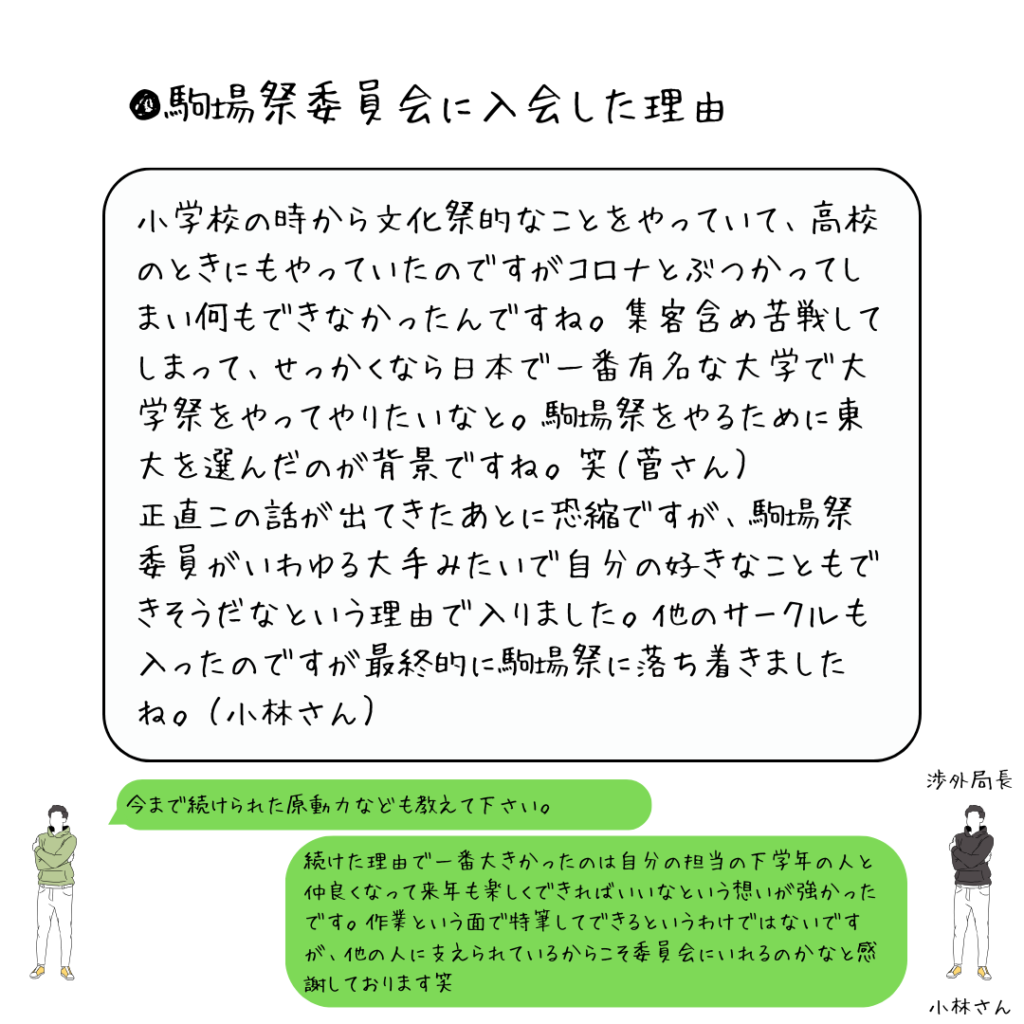 ●駒場祭委員会に入会した理由
小学校の時から文化祭的なことをやっていて、高校
のときにもやっていたのですがコロナとぶつかってし
まい何もできなかったんですね。集客含め苦戦して
しまって、せっかくなら日本で一番有名な大学で大
学祭をやってやりたいなと。駒場祭をやるために東
大を選んだのが背景ですね。笑(菅さん)
正直この話が出てきたあとに恐縮ですが、駒場祭
委員がいわゆる大手みたいで自分の好きなこともで
きそうだなという理由で入りました。他のサークルも
入ったのですが最終的に駒場祭に落ち着きました
ね。(小林さん)
今まで続けられた原動力なども教えて下さい。
渉外局長
続けた理由で一番大きかったのは自分の担当の下学年の人と
仲良くなって来年も楽しくできればいいなという想いが強かった
です。作業という面で特筆してできるというわけではないです
が、他の人に支えられているからこそ委員会にいれるのかなと感
謝しております笑
小林さん